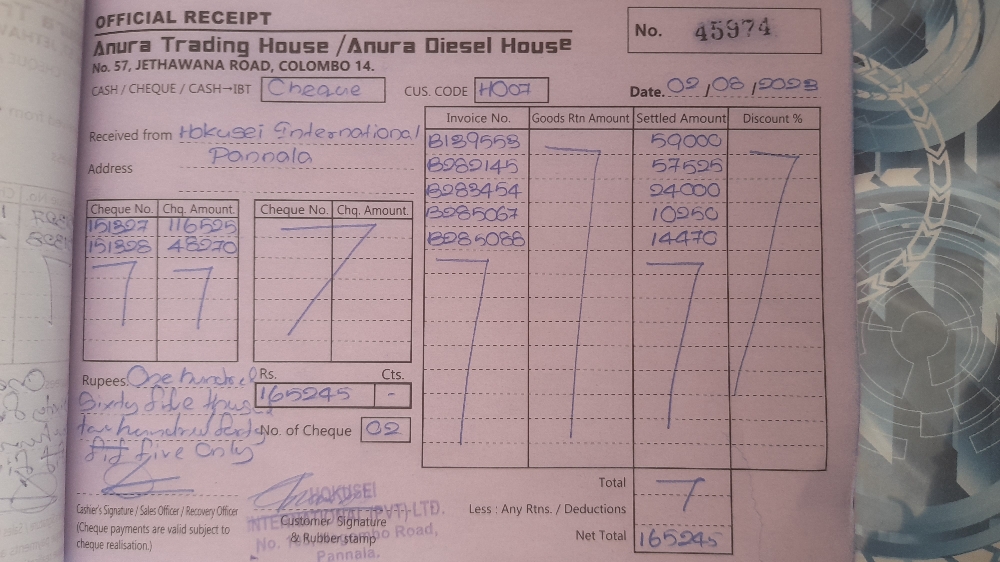 OFFICIAL RECEIPT
No. 45974
Anura Trading House / Anura Diesel House
No. 57, JETHAWANA ROAD, COLOMBO 14.
CASH / CHEQUE / CASH→IBT Cheque CUS. CODE H007 Date. 02/08/2023
Received from Hokusei International
Address Pannala
Invoice No. Goods Rtn Amount Settled Amount Discount %
B189558 59000
B282145 57525
B283454 24000
B285067 10250
B285088 14470
Cheque No. Chq. Amount. Cheque No. Chq. Amount.
151827 116525
151828 48270
Rupees. One hundred
Sixty five
hundred
five Only
Rs. Cts.
165245 -
No. of Cheque 02
Total
Less : Any Rtns. / Deductions
Net Total 165245
Casher's Signature / Sales Officer / Recovery Officer
(Cheque payments are valid subject to
cheque realisation.)
Customer Signature
& Rubber stamp
HOKUSEI
INTERNATIONAL (PVT) LTD.
No. Road,
Pannala.